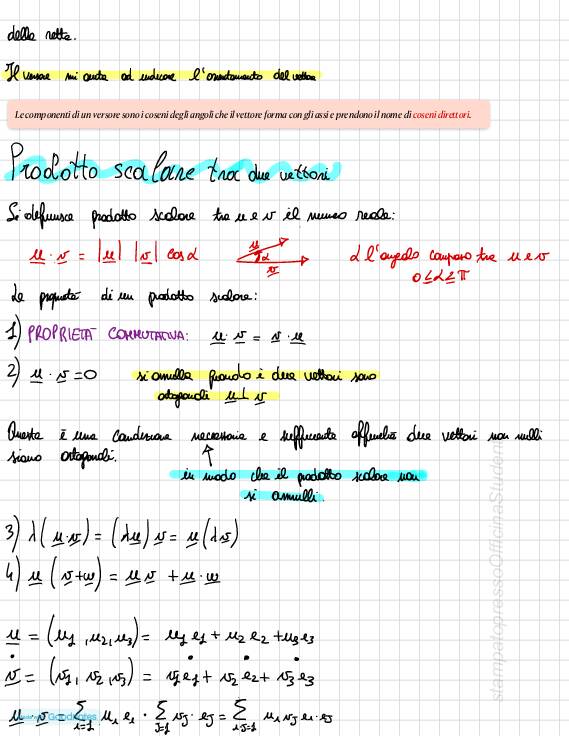 della retta.
Il versore mi aiuta ad indicare l'orientamento del vettore
Le componenti di un versore sono i coseni degli angoli che il vettore forma con gli assi e prendono il nome di coseni direttori.
Prodotto scalare tra due vettori
Si definisce prodotto scalare tra u e v il numero reale:
u · v = |u| |v| cos α
u
α
v
α l'angolo compreso tra u e v
0 ≤ α ≤ π
Le proprietà di un prodotto scalare:
1) PROPRIETÀ COMMUTATIVA: u · v = v · u
2) u · v = 0 si annulla quando i due vettori sono
ortogonali u ⊥ v
Questa è una condizione necessaria e sufficiente affinché due vettori non nulli
siano ortogonali.
in modo che il prodotto scalare non
si annulli.
3) λ(u · v) = (λu) v = u (λv)
4) u (v + w) = u v + u · w
u = (u1, u2, u3) = u1 e1 + u2 e2 + u3 e3
v = (v1, v2, v3) = v1 e1 + v2 e2 + v3 e3
u v = Σ i=1 ui ei · Σ j=1 vj · ej = Σ i,j=1 ui vj ei · ej
Goodnotes
stampatopressoOfficinaStudenti